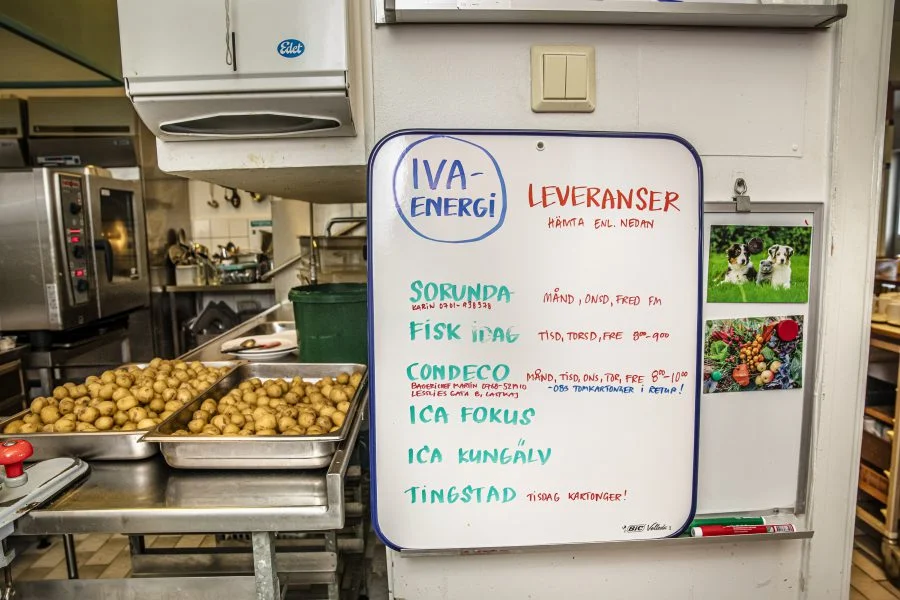 Edet
IVA-
ENERGI
LEVERANSER
HÄMTA ENL. NEDAN
SORUNDA MÅND, ONSD, FRED FM
KARIN
FISK IDAG TISD, TORSD, FRE 8⁰⁰-9⁰⁰
CONDECO MÅND, TISD, ONS, TOR, FRE 8⁰⁰-10⁰⁰
MARTIN
-OBS TOMKARTONGER I RETUR!
ICA FOKUS
ICA KUNGÄLV
TINGSTAD TISDAG KARTONGER!
BIC Velleda